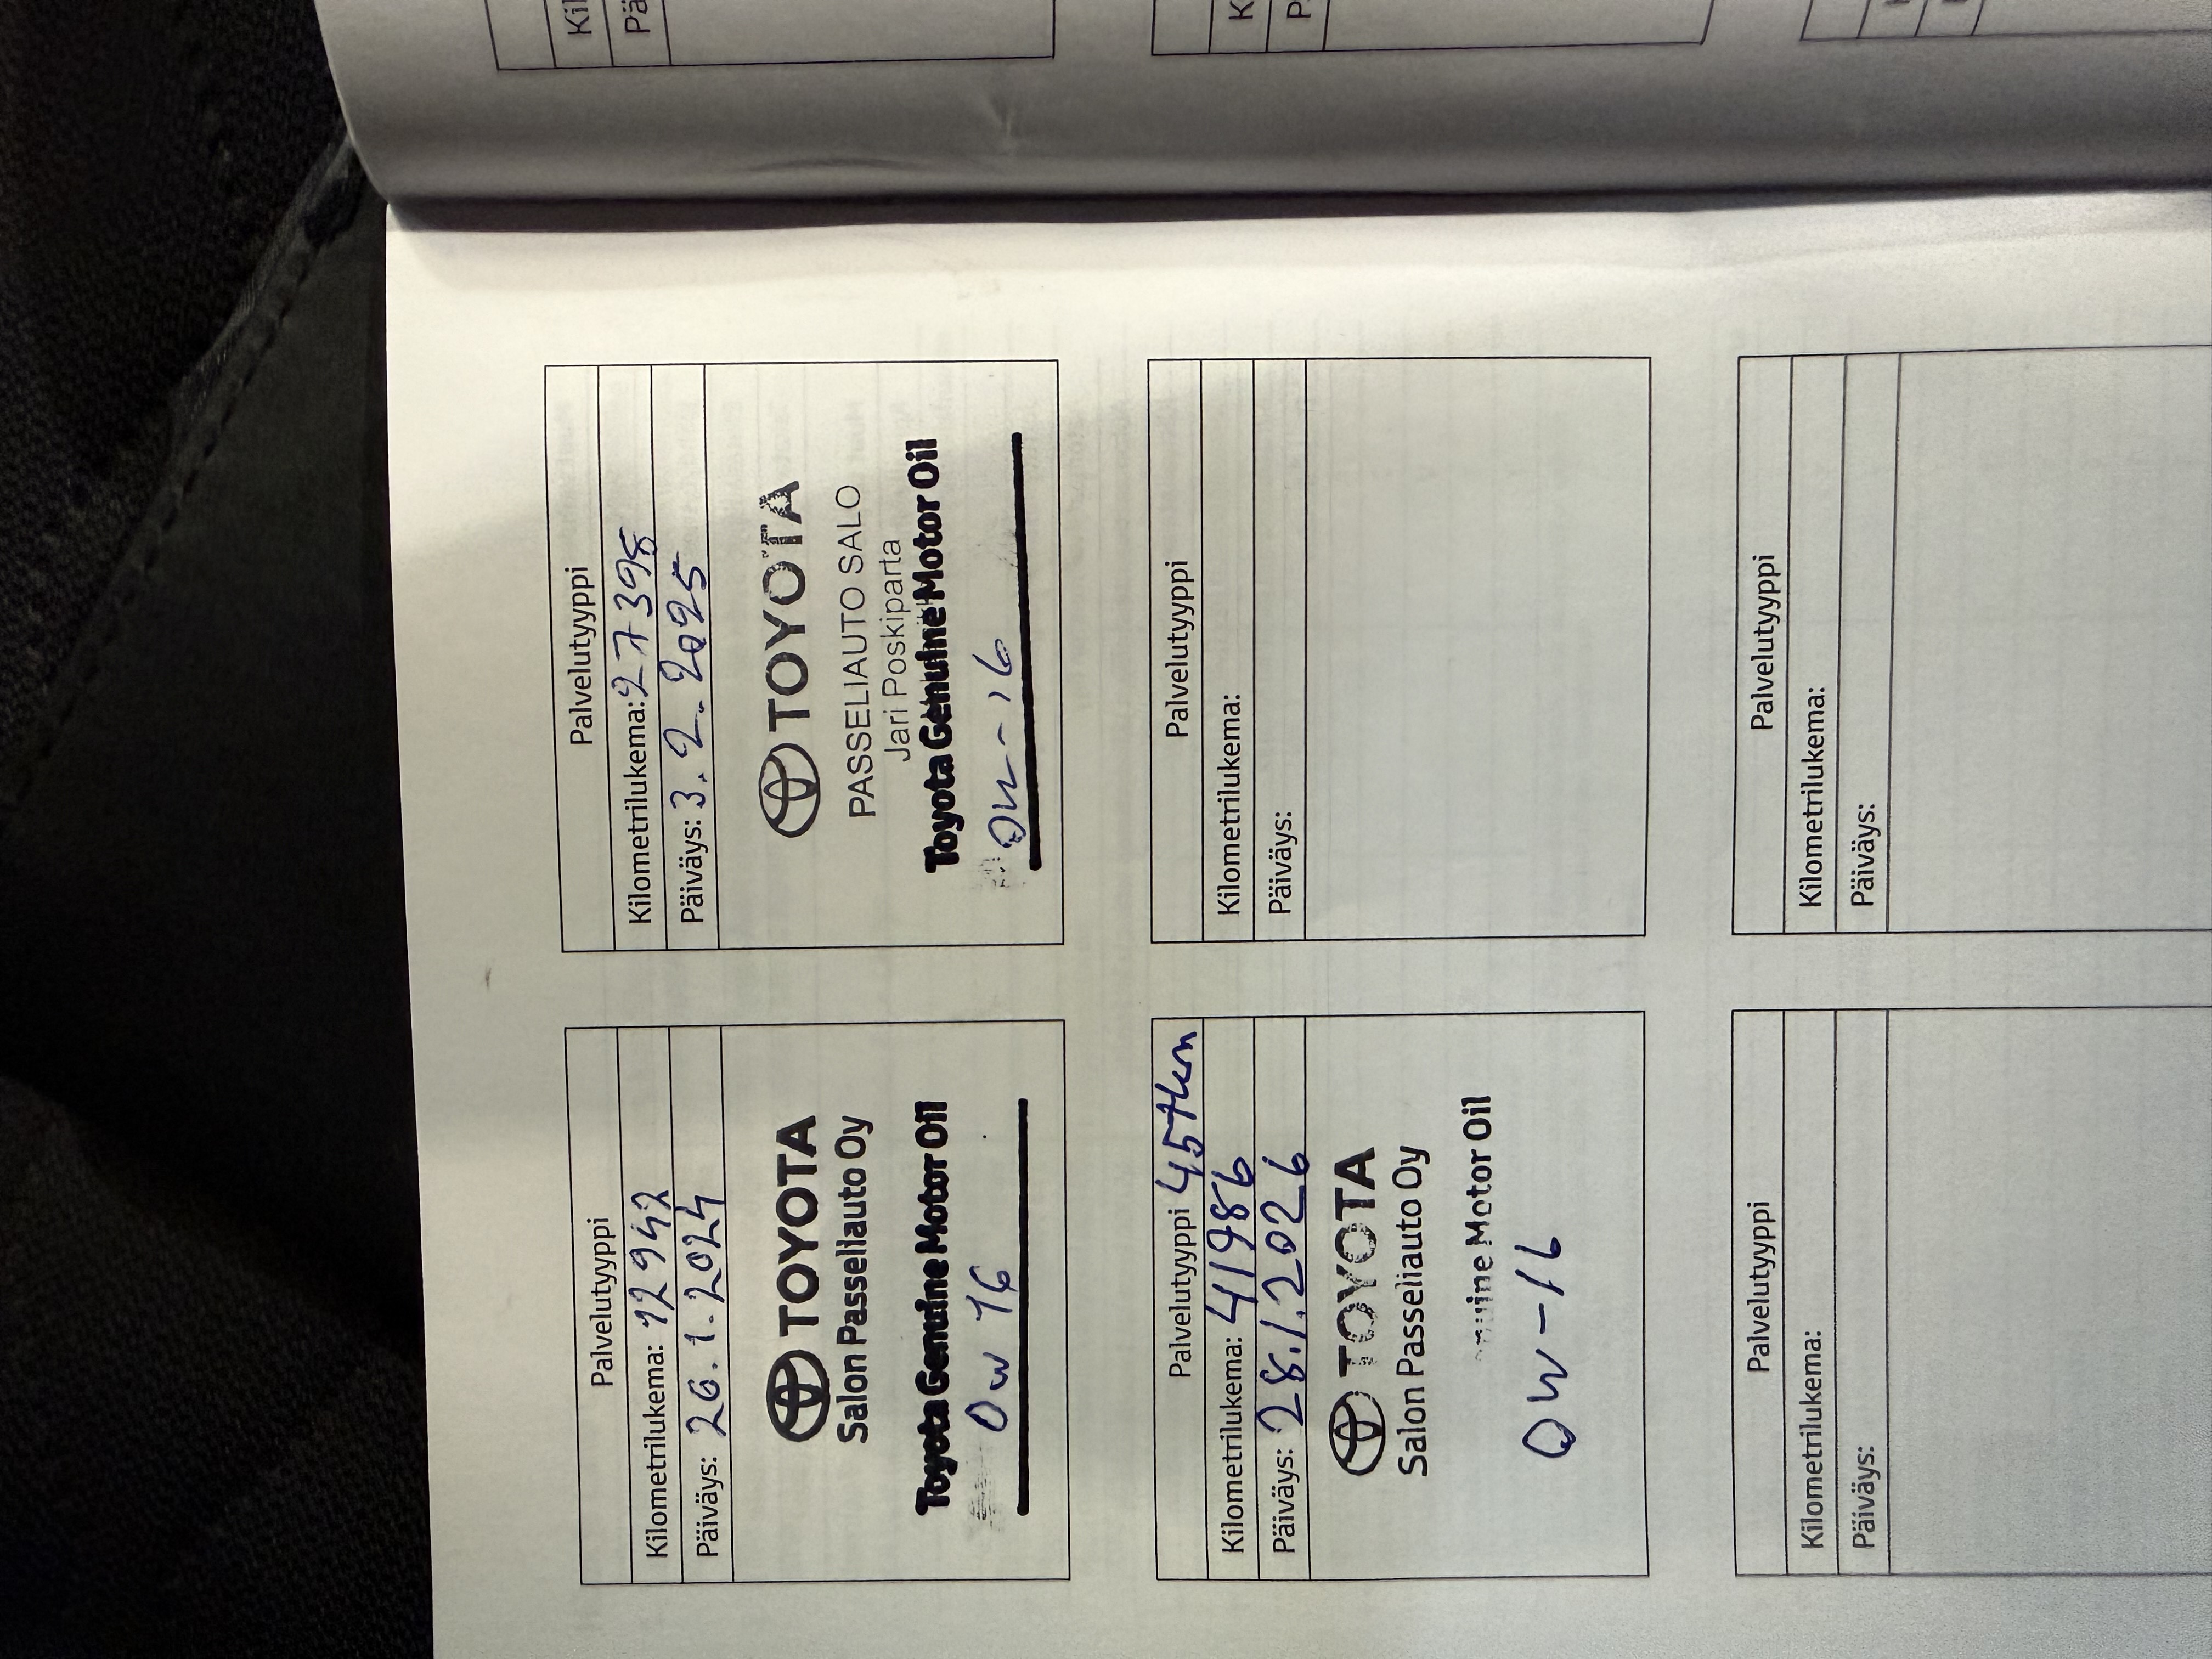 Palvelutyyppi
Kilometrilukema: 12942
Päiväys: 26.1.2024
TOYOTA
Salon Passeliauto Oy
Toyota Genuine Motor Oil
0w 16
Palvelutyyppi
Kilometrilukema: 27398
Päiväys: 3.2.2025
TOYOTA
PASSELIAUTO SALO
Jari Poskiparta
Toyota Genuine Motor Oil
0w-16
Palvelutyyppi 45tkm
Kilometrilukema: 41986
Päiväys: 28.1.2026
TOYOTA
Salon Passeliauto Oy
Motor Oil
0W-16
Palvelutyyppi
Kilometrilukema:
Päiväys:
Palvelutyyppi
Kilometrilukema:
Päiväys:
Palvelutyyppi
Kilometrilukema:
Päiväys: